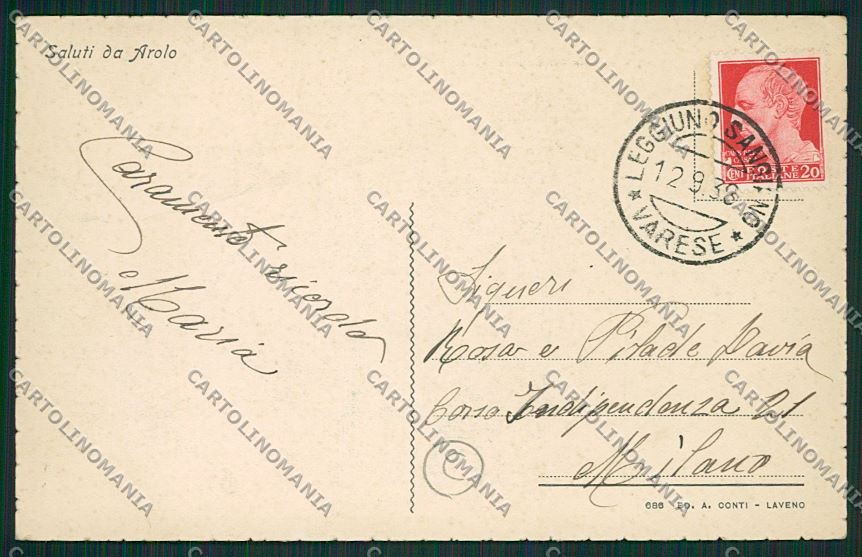 Saluti da Arolo
Caramente ricordo
Maria
LEGGIUNO SANGIANO
12.9.38
★ VARESE ★
POSTE
CENT. ITALIANE 20
Signori
Rosa e Pilade Pavia
Corso Indipendenza 21
Milano
C
686 ED. A. CONTI - LAVENO
CARTOLINOMANIA